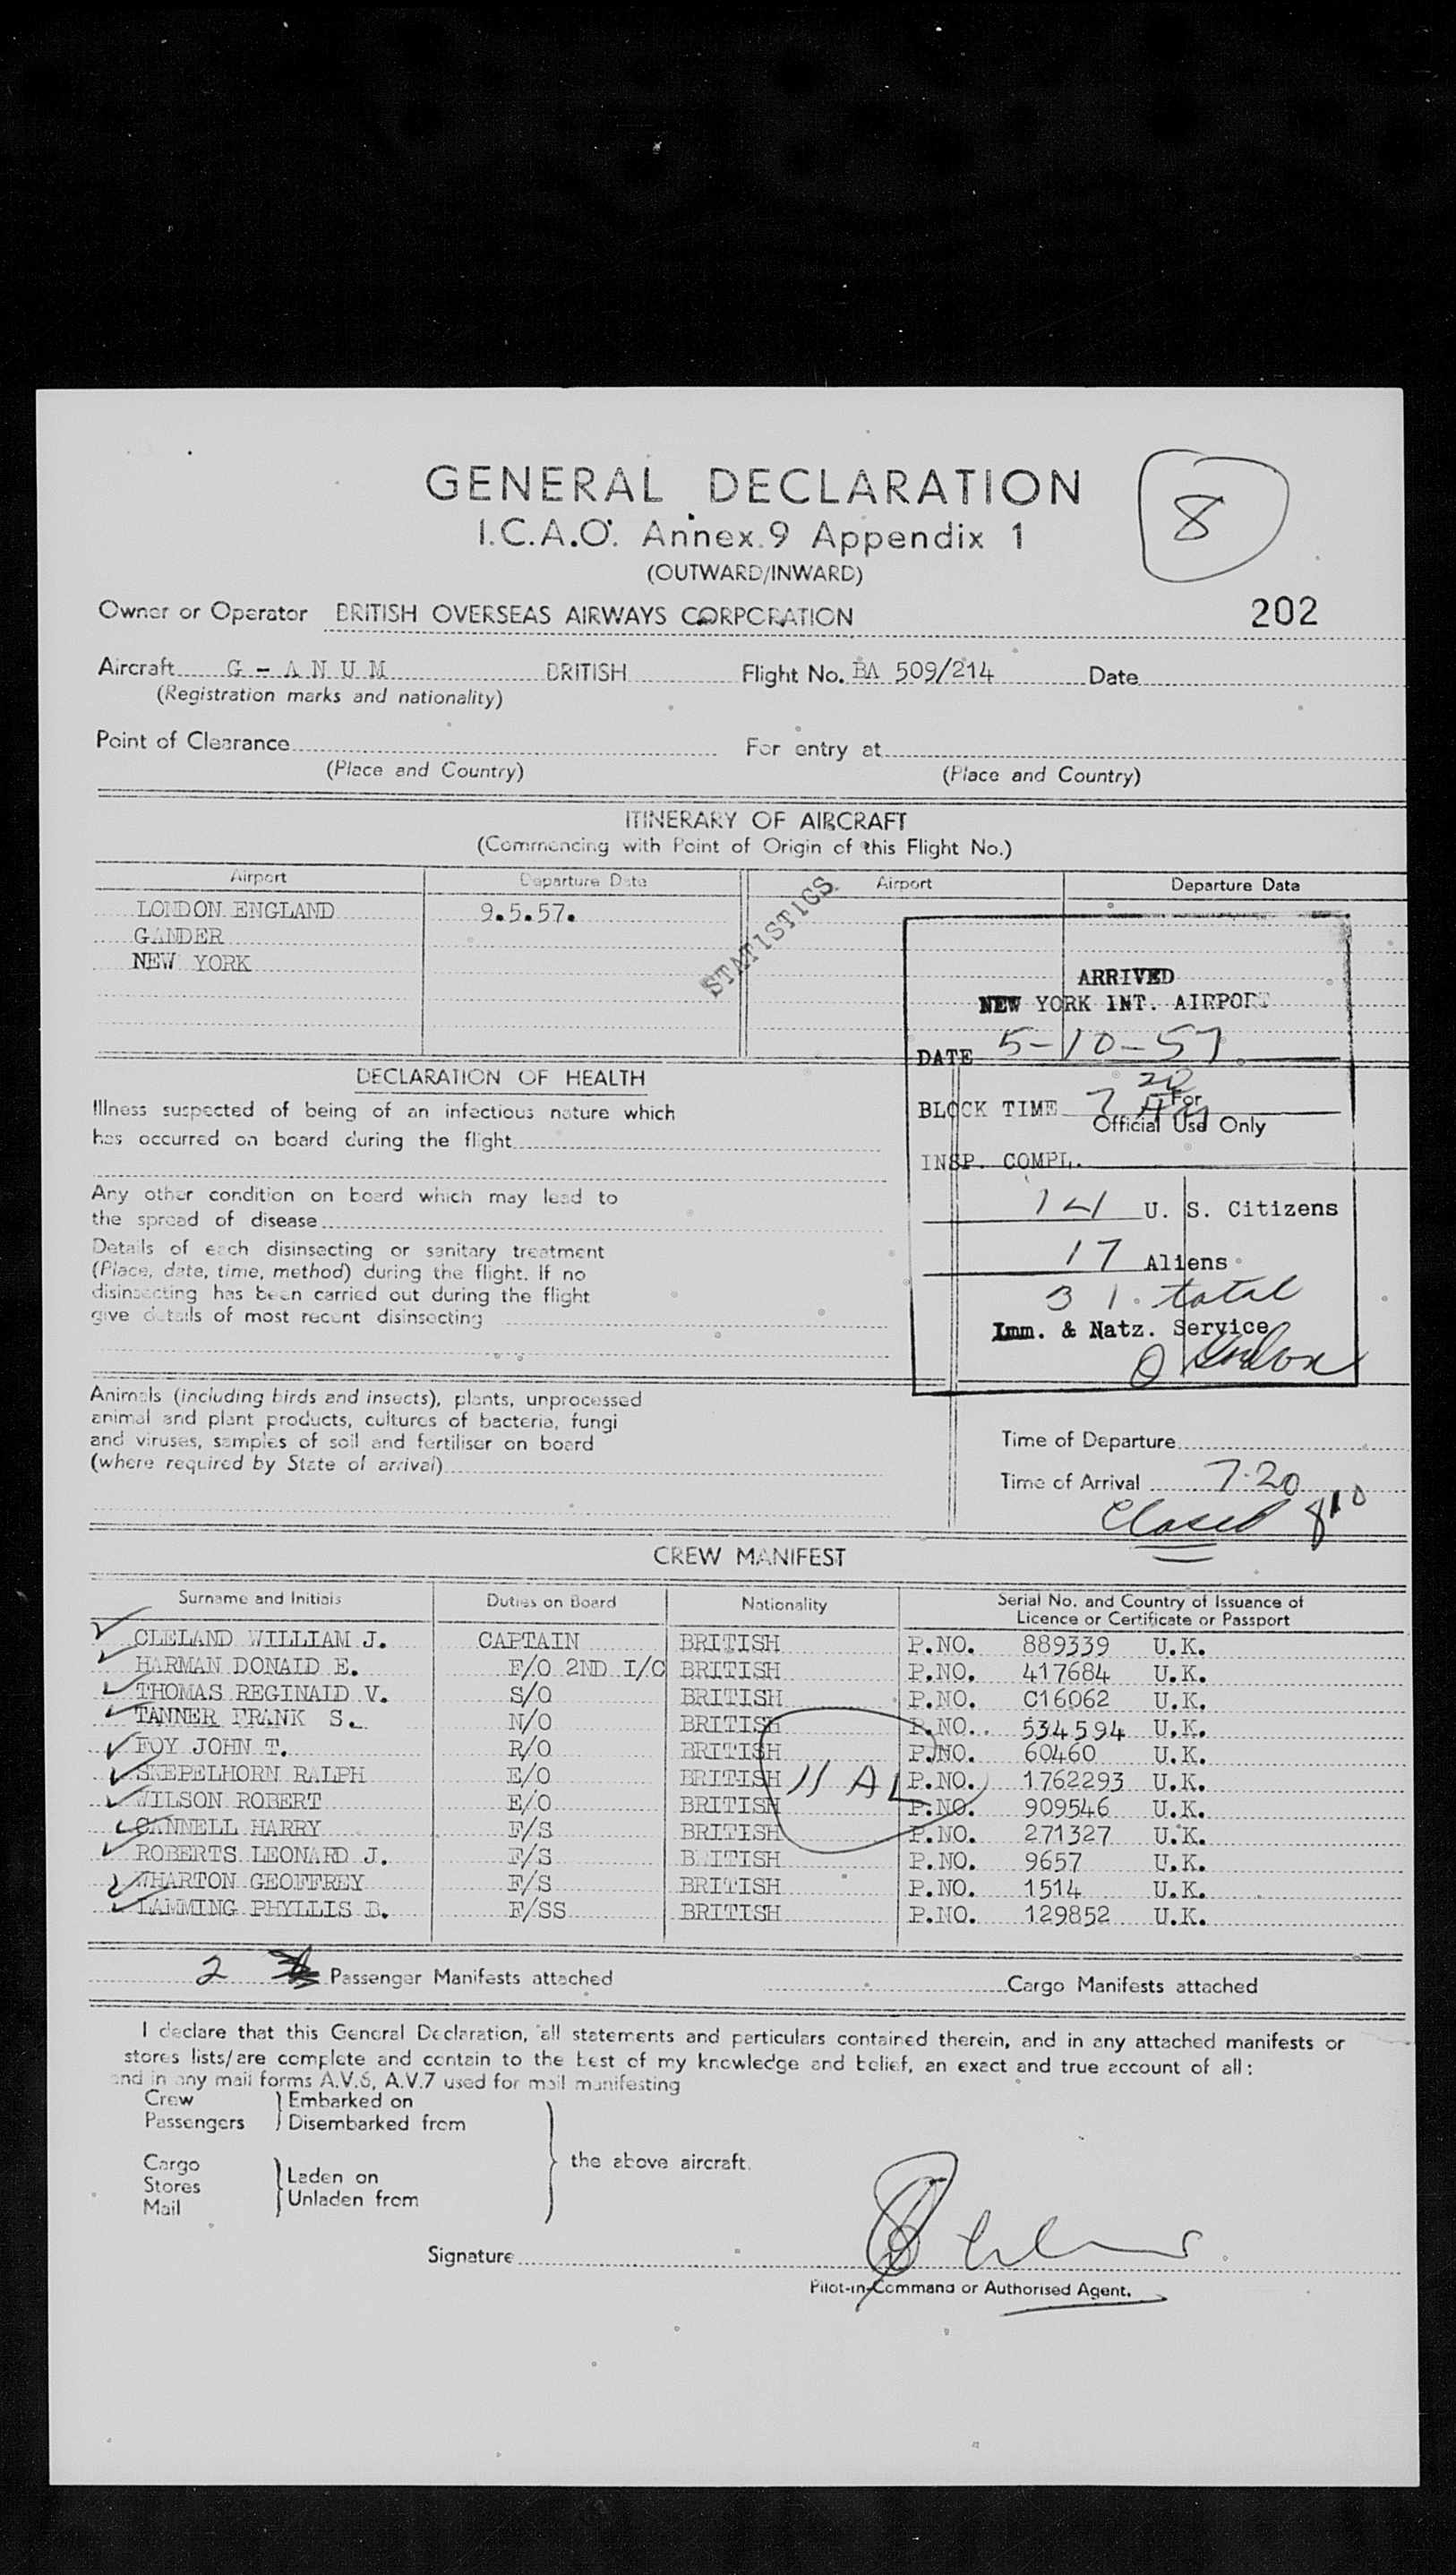 GENERAL DECLARATION
8
I.C.A.O. Annex.9 Appendix 1
(OUTWARD/INWARD)
Owner or Operator BRITISH OVERSEAS AIRWAYS CORPORATION 202
Aircraft G - A N U M BRITISH Flight No. BA 509/214 Date
(Registration marks and nationality)
Point of Clearance For entry at
(Place and Country) (Place and Country)
ITINERARY OF AIRCRAFT
(Commencing with Point of Origin of this Flight No.)
Airport Departure Date Airport Departure Date
LONDON ENGLAND 9.5.57.
GANDER
NEW YORK
STATISTICS
ARRIVED
NEW YORK INT. AIRPORT
DATE 5-10-57
BLOCK TIME 7 20
For
Official Use Only
INSP. COMPL.
14 U. S. Citizens
17 Aliens
31 total
Imm. & Natz. Service
DECLARATION OF HEALTH
Illness suspected of being of an infectious nature which
has occurred on board during the flight
Any other condition on board which may lead to
the spread of disease
Details of each disinsecting or sanitary treatment
(Place, date, time, method) during the flight. If no
disinsecting has been carried out during the flight
give details of most recent disinsecting
Animals (including birds and insects), plants, unprocessed
animal and plant products, cultures of bacteria, fungi
and viruses, samples of soil and fertiliser on board
(where required by State of arrival)
Time of Departure
Time of Arrival 7.20
Closed 8 10
CREW MANIFEST
Surname and Initials Duties on Board Nationality Serial No. and Country of Issuance of
Licence or Certificate or Passport
CLELAND WILLIAM J. CAPTAIN BRITISH P.NO. 889339 U.K.
HARMAN DONALD E. F/O 2ND I/C BRITISH P.NO. 417684 U.K.
THOMAS REGINALD V. S/O BRITISH P.NO. C16062 U.K.
TANNER FRANK S. N/O BRITISH P.NO. 534594 U.K.
FOY JOHN T. R/O BRITISH P.NO. 60460 U.K.
SKEPELHORN RALPH E/O BRITISH P.NO. 1762293 U.K.
WILSON ROBERT E/O BRITISH P.NO. 909546 U.K.
CANNELL HARRY F/S BRITISH P.NO. 271327 U.K.
ROBERTS LEONARD J. F/S BRITISH P.NO. 9657 U.K.
WHARTON GEOFFREY F/S BRITISH P.NO. 1514 U.K.
LAMMING PHYLLIS B. F/SS BRITISH P.NO. 129852 U.K.
11 AL
2 Passenger Manifests attached Cargo Manifests attached
I declare that this General Declaration, all statements and particulars contained therein, and in any attached manifests or
stores lists/are complete and contain to the best of my knowledge and belief, an exact and true account of all:
and in any mail forms A.V.6, A.V.7 used for mail manifesting
Crew Embarked on
Passengers Disembarked from
the above aircraft.
Cargo Laden on
Stores
Mail Unladen from
Signature
Pilot-in-Command or Authorised Agent.